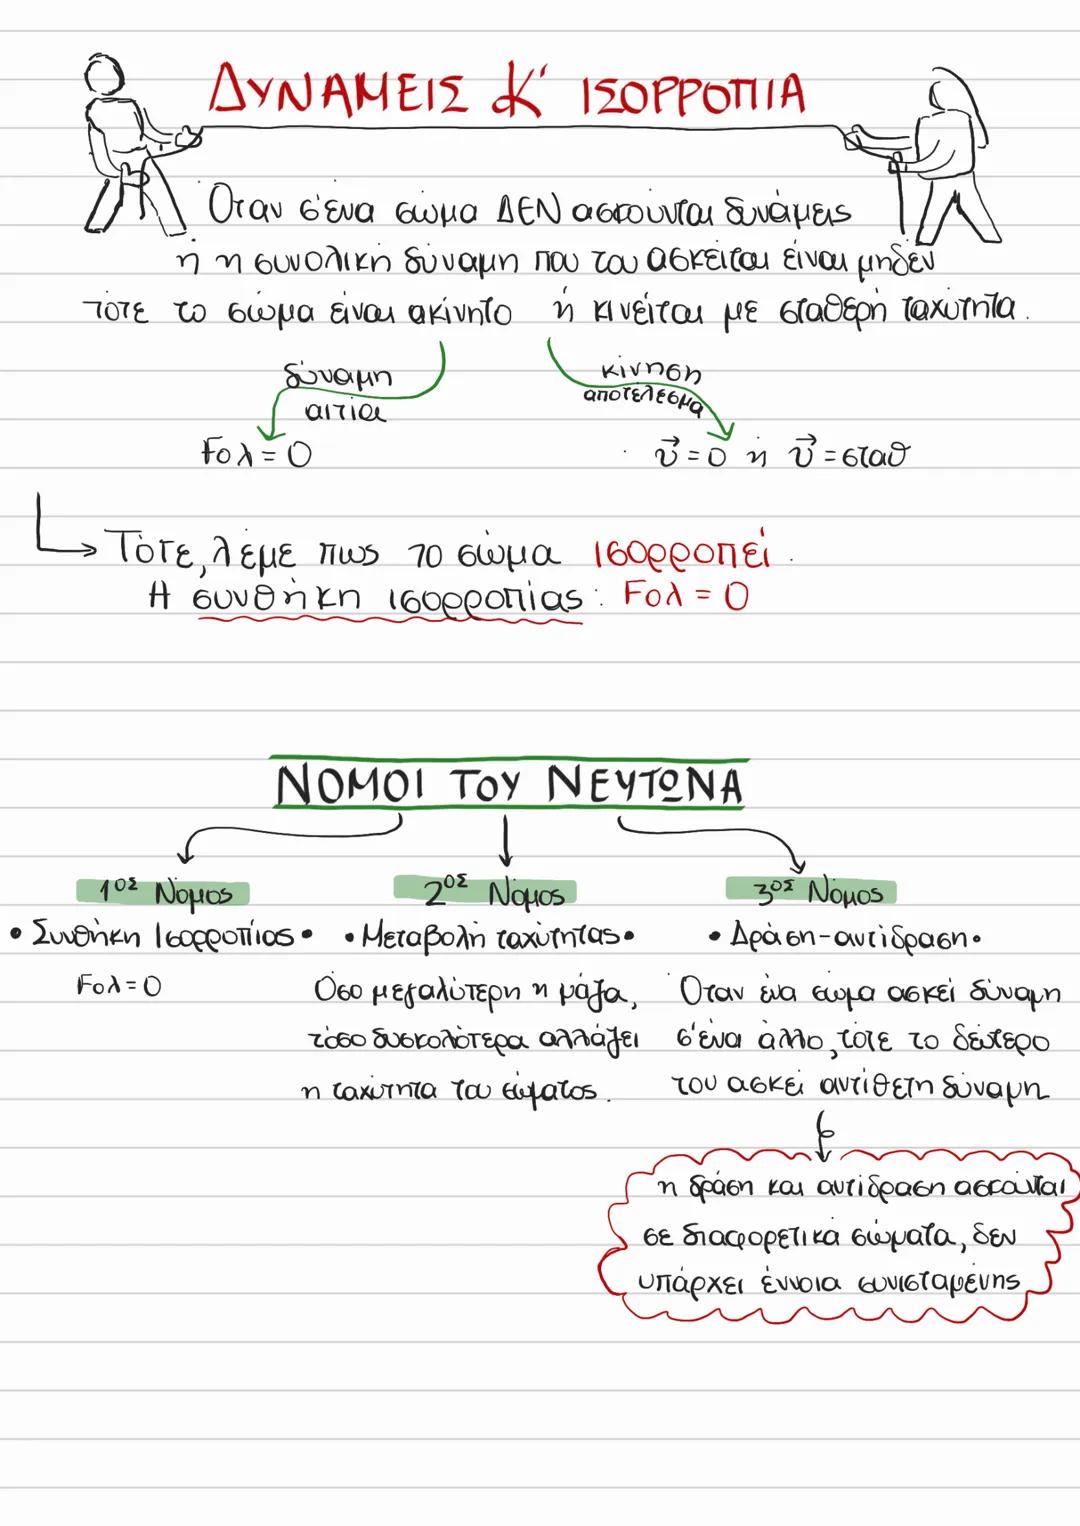 ΔΥΝΑΜΕΙΣ Κ' ΙΣΟΡΡΟΠΙΑ
Όταν σ'ένα σώμα ΔΕΝ ασκούνται δυνάμεις
ή η συνολική δύναμη που του ασκείται είναι μηδέν
τότε το σώμα είναι ακίνητο ή κινείται με σταθερή ταχύτητα.
δύναμη
αιτία
κίνηση
αποτέλεσμα
Fολ = 0
υ⃗ = 0 ή υ⃗ = σταθ
Τότε, λέμε πως το σώμα ισορροπεί.
Η συνθήκη ισορροπίας: Fολ = 0
ΝΟΜΟΙ ΤΟΥ ΝΕΥΤΩΝΑ
1ος Νόμος
• Συνθήκη Ισορροπίας •
Fολ = 0
2ος Νόμος
• Μεταβολή ταχύτητας •
Όσο μεγαλύτερη η μάζα,
τόσο δυσκολότερα αλλάζει
η ταχύτητα του σώματος.
3ος Νόμος
• Δράση-αντίδραση •
Όταν ένα σώμα ασκεί δύναμη
σ'ένα άλλο, τότε το δεύτερο
του ασκεί αντίθετη δύναμη
η δράση και αντίδραση ασκούνται
σε διαφορετικά σώματα, δεν
υπάρχει έννοια συνισταμένης